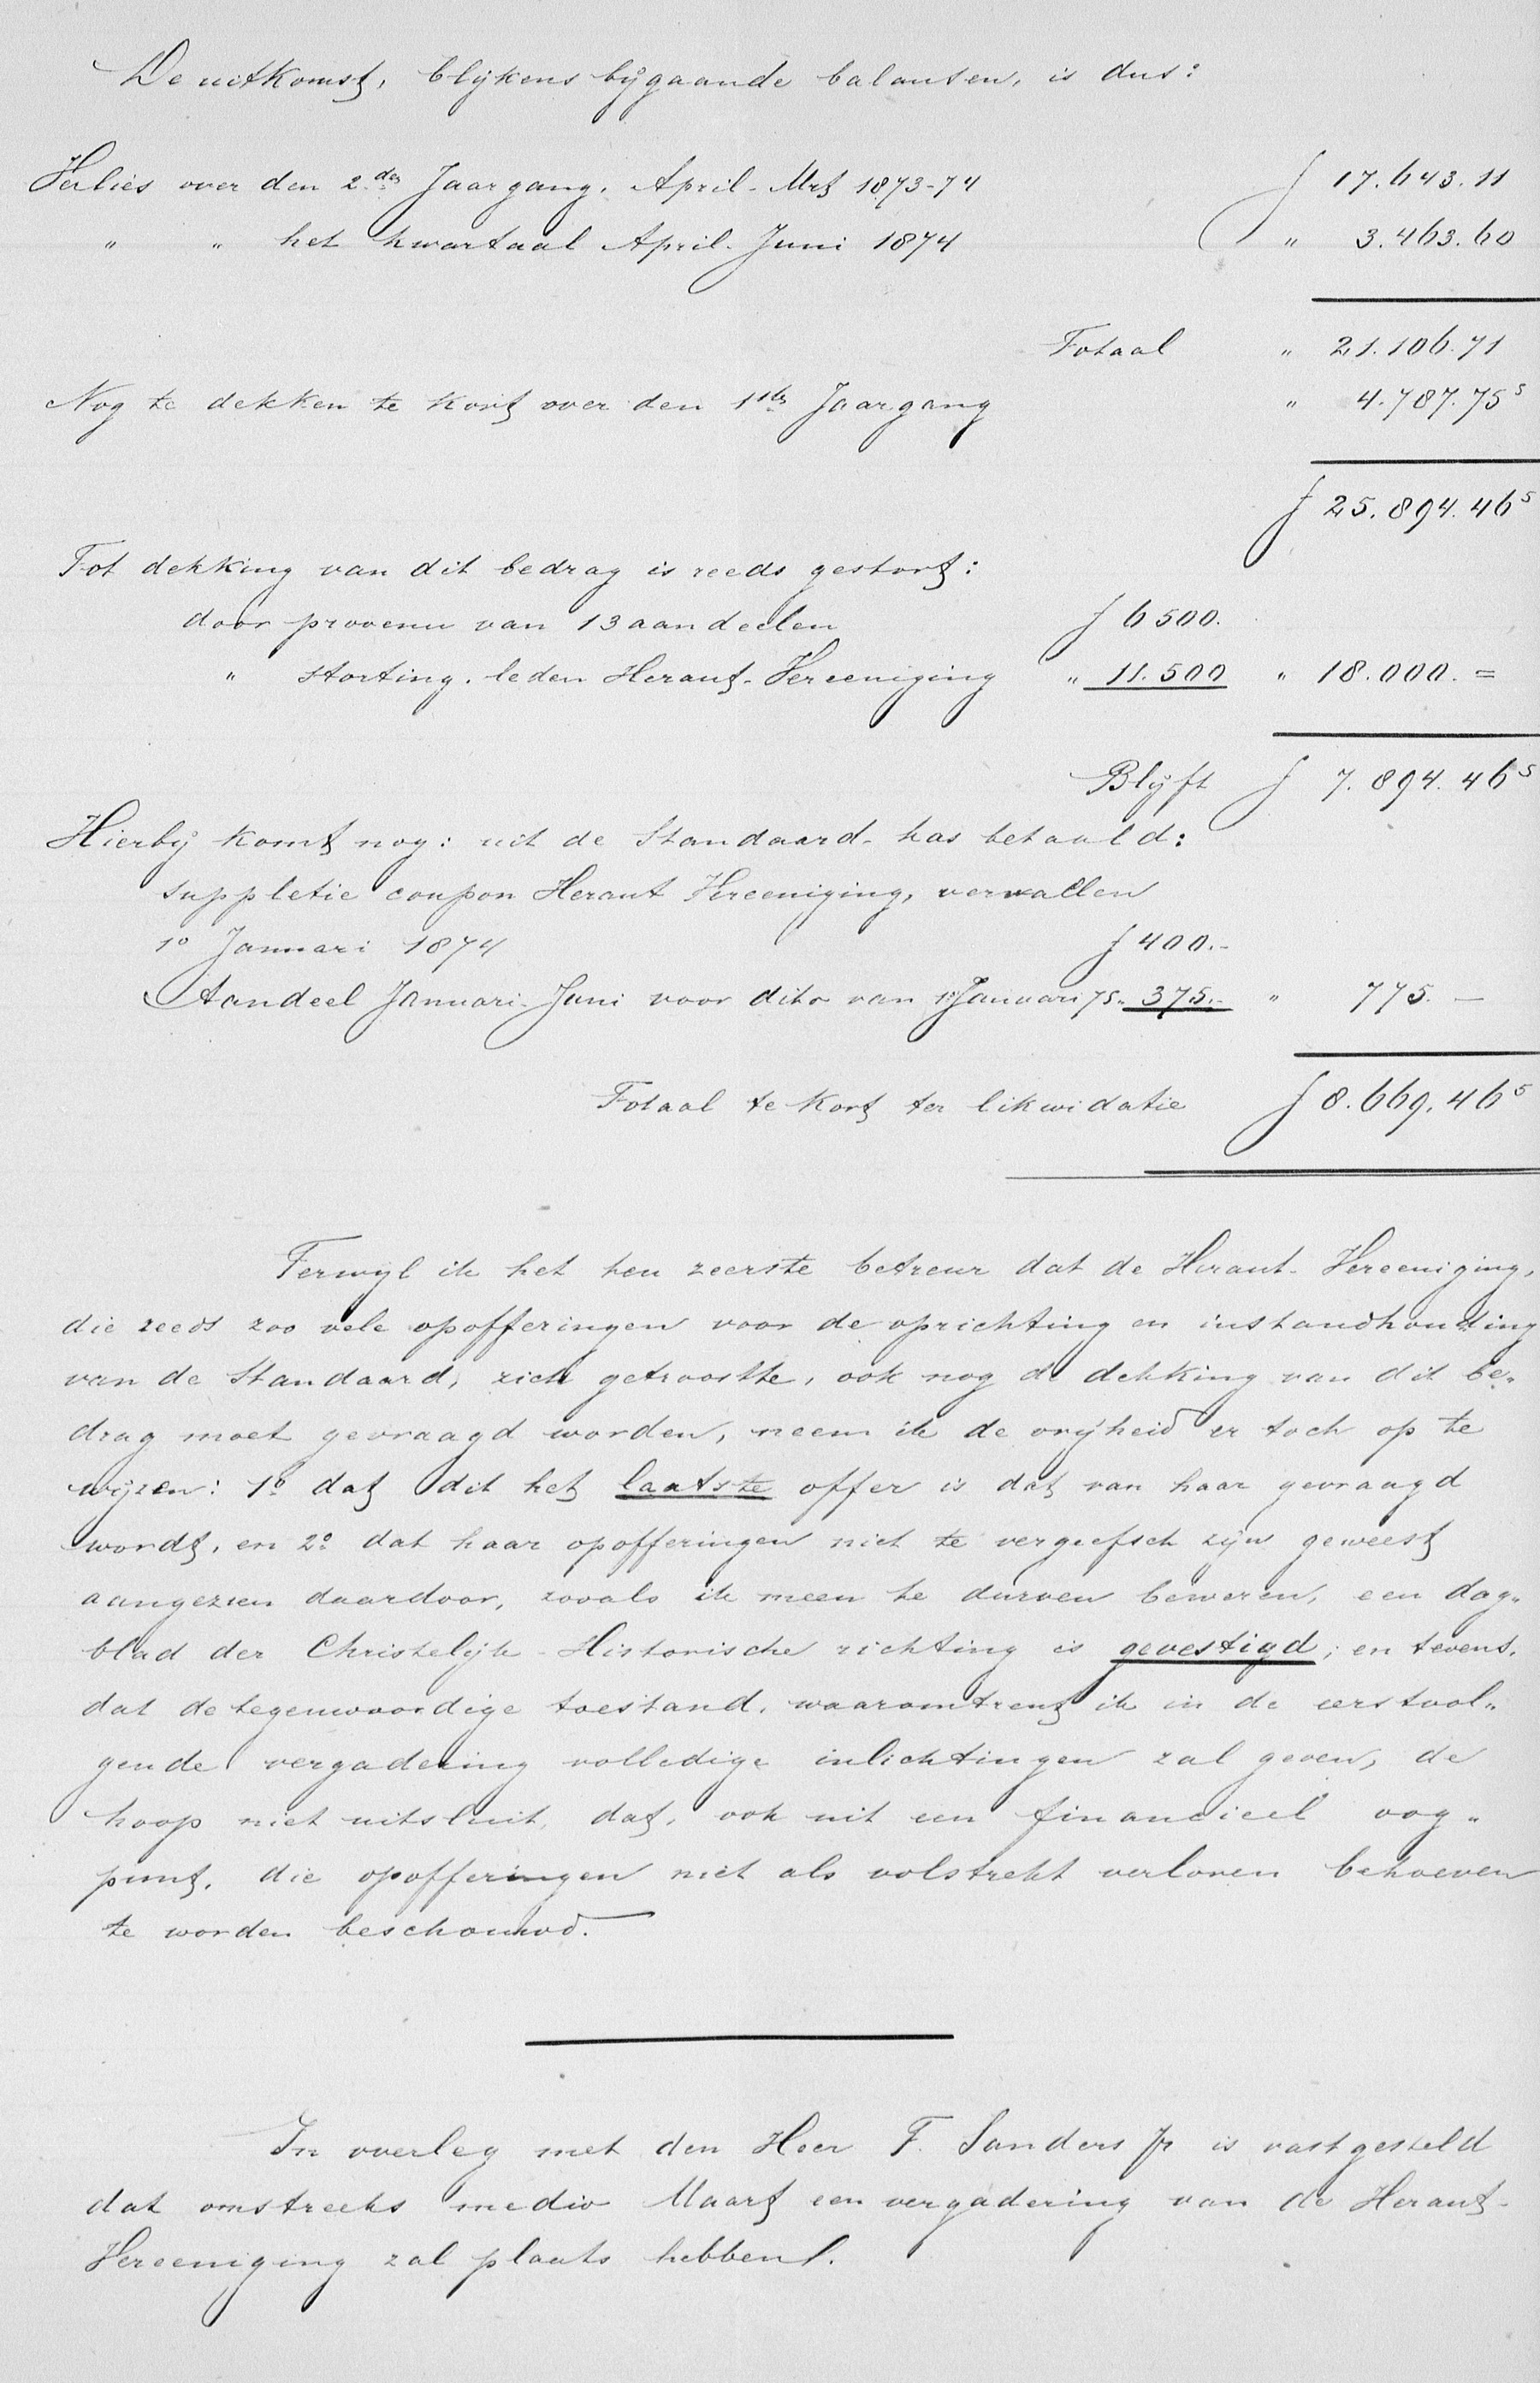 De uitkomst, blijkens bijgaande balansen, is dus:
Verlies over den 2.den Jaargang, April-Mrt 1873-74 ƒ 17.643.11
" " het kwartaal April-Juni 1874 " 3.463.60
Totaal " 21.106.71
Nog te dekken te kort over den 1sten Jaargang " 4.787.75⁵
ƒ 25.894.46⁵
Tot dekking van dit bedrag is reeds gestort:
door provenu van 13 aandeelen ƒ 6500.
" storting. leden Heraut-Vereeniging " 11.500 " 18.000. =
Blijft ƒ 7.894.46⁵
Hierbij komt nog: uit de Standaard-kas betaald:
suppletie coupon Heraut Vereeniging, vervallen
1º Januari 1874 ƒ 400.-
Aandeel Januari-Juni voor dito van 1º Januari 75 " 375.- " 775. —
Totaal te kort ter likwidatie ƒ 8.669,46⁵
Terwijl ik het ten zeerste betreur dat de Heraut-Vereeniging,
die reeds zoo vele opofferingen voor de oprichting en instandhouding
van de Standaard, zich getroostte, ook nog de dekking van dit be„
drag moet gevraagd worden, neem ik de vrijheid er toch op te
wijzen: 1º dat dit het laatste offer is dat van haar gevraagd
wordt, en 2º dat haar opofferingen niet te vergeefsch zijn geweest
aangezien daardoor, zooals ik meen te durven beweren, een dag„
blad der Christelijk-Historische richting is gevestigd; en tevens,
dat de tegenwoordige toestand, waaromtrent ik in de eerstvol„
gende vergadering volledige inlichtingen zal geven, de
hoop niet uitsluit, dat, ook uit een financieel oog„
punt, die opofferingen niet als volstrekt verloren behoeven
te worden beschouwd.—
In overleg met den Heer F. Sanders Jr is vastgesteld
dat omstreeks medio Maart een vergadering van de Heraut-
Vereeniging zal plaats hebben.